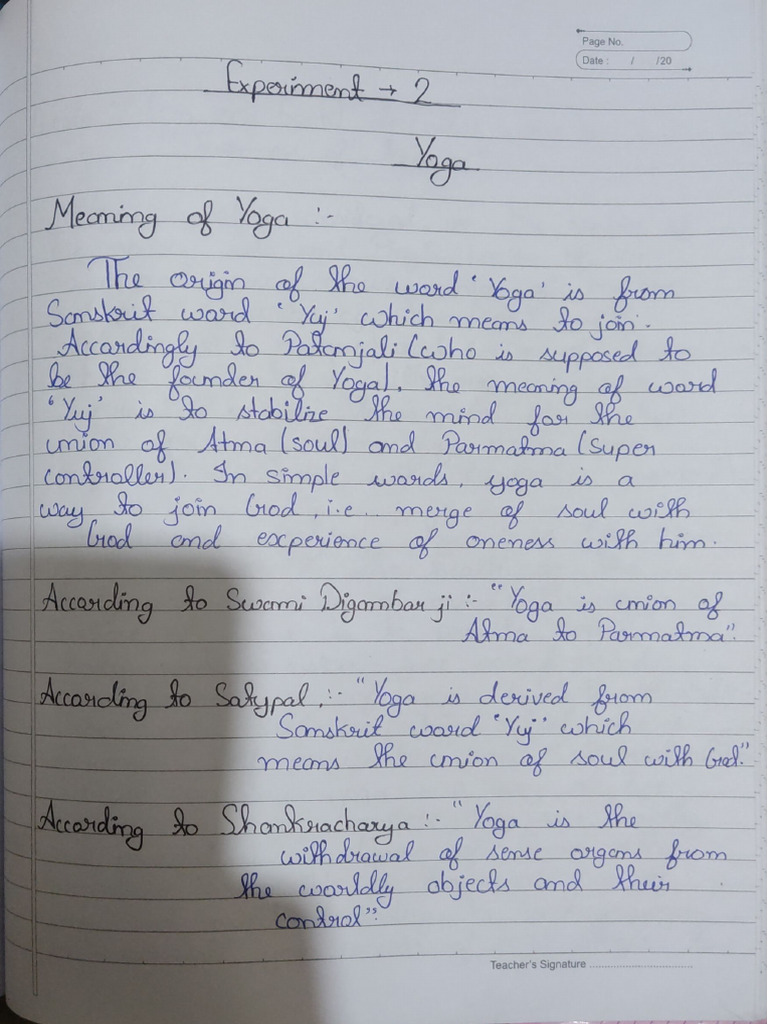 Page No.
Date : / /20
Experiment → 2
Yoga
Meaning of Yoga :-
The origin of the word 'Yoga' is from
Sanskrit word 'Yuj' which means to join.
Accordingly to Patanjali (who is supposed to
be the founder of Yoga), the meaning of word
'Yuj' is to stabilize the mind for the
union of Atma (soul) and Parmatma (super
controller). In simple words, yoga is a
way to join God, i.e.. merge of soul with
God and experience of oneness with him.
According to Swami Digambar ji :- "Yoga is union of
Atma to Parmatma".
According to Satypal, :- "Yoga is derived from
Sanskrit word 'Yuj' which
means the union of soul with God."
According to Shankracharya :- "Yoga is the
withdrawal of sense organs from
the worldly objects and their
control".
Teacher's Signature ..............................